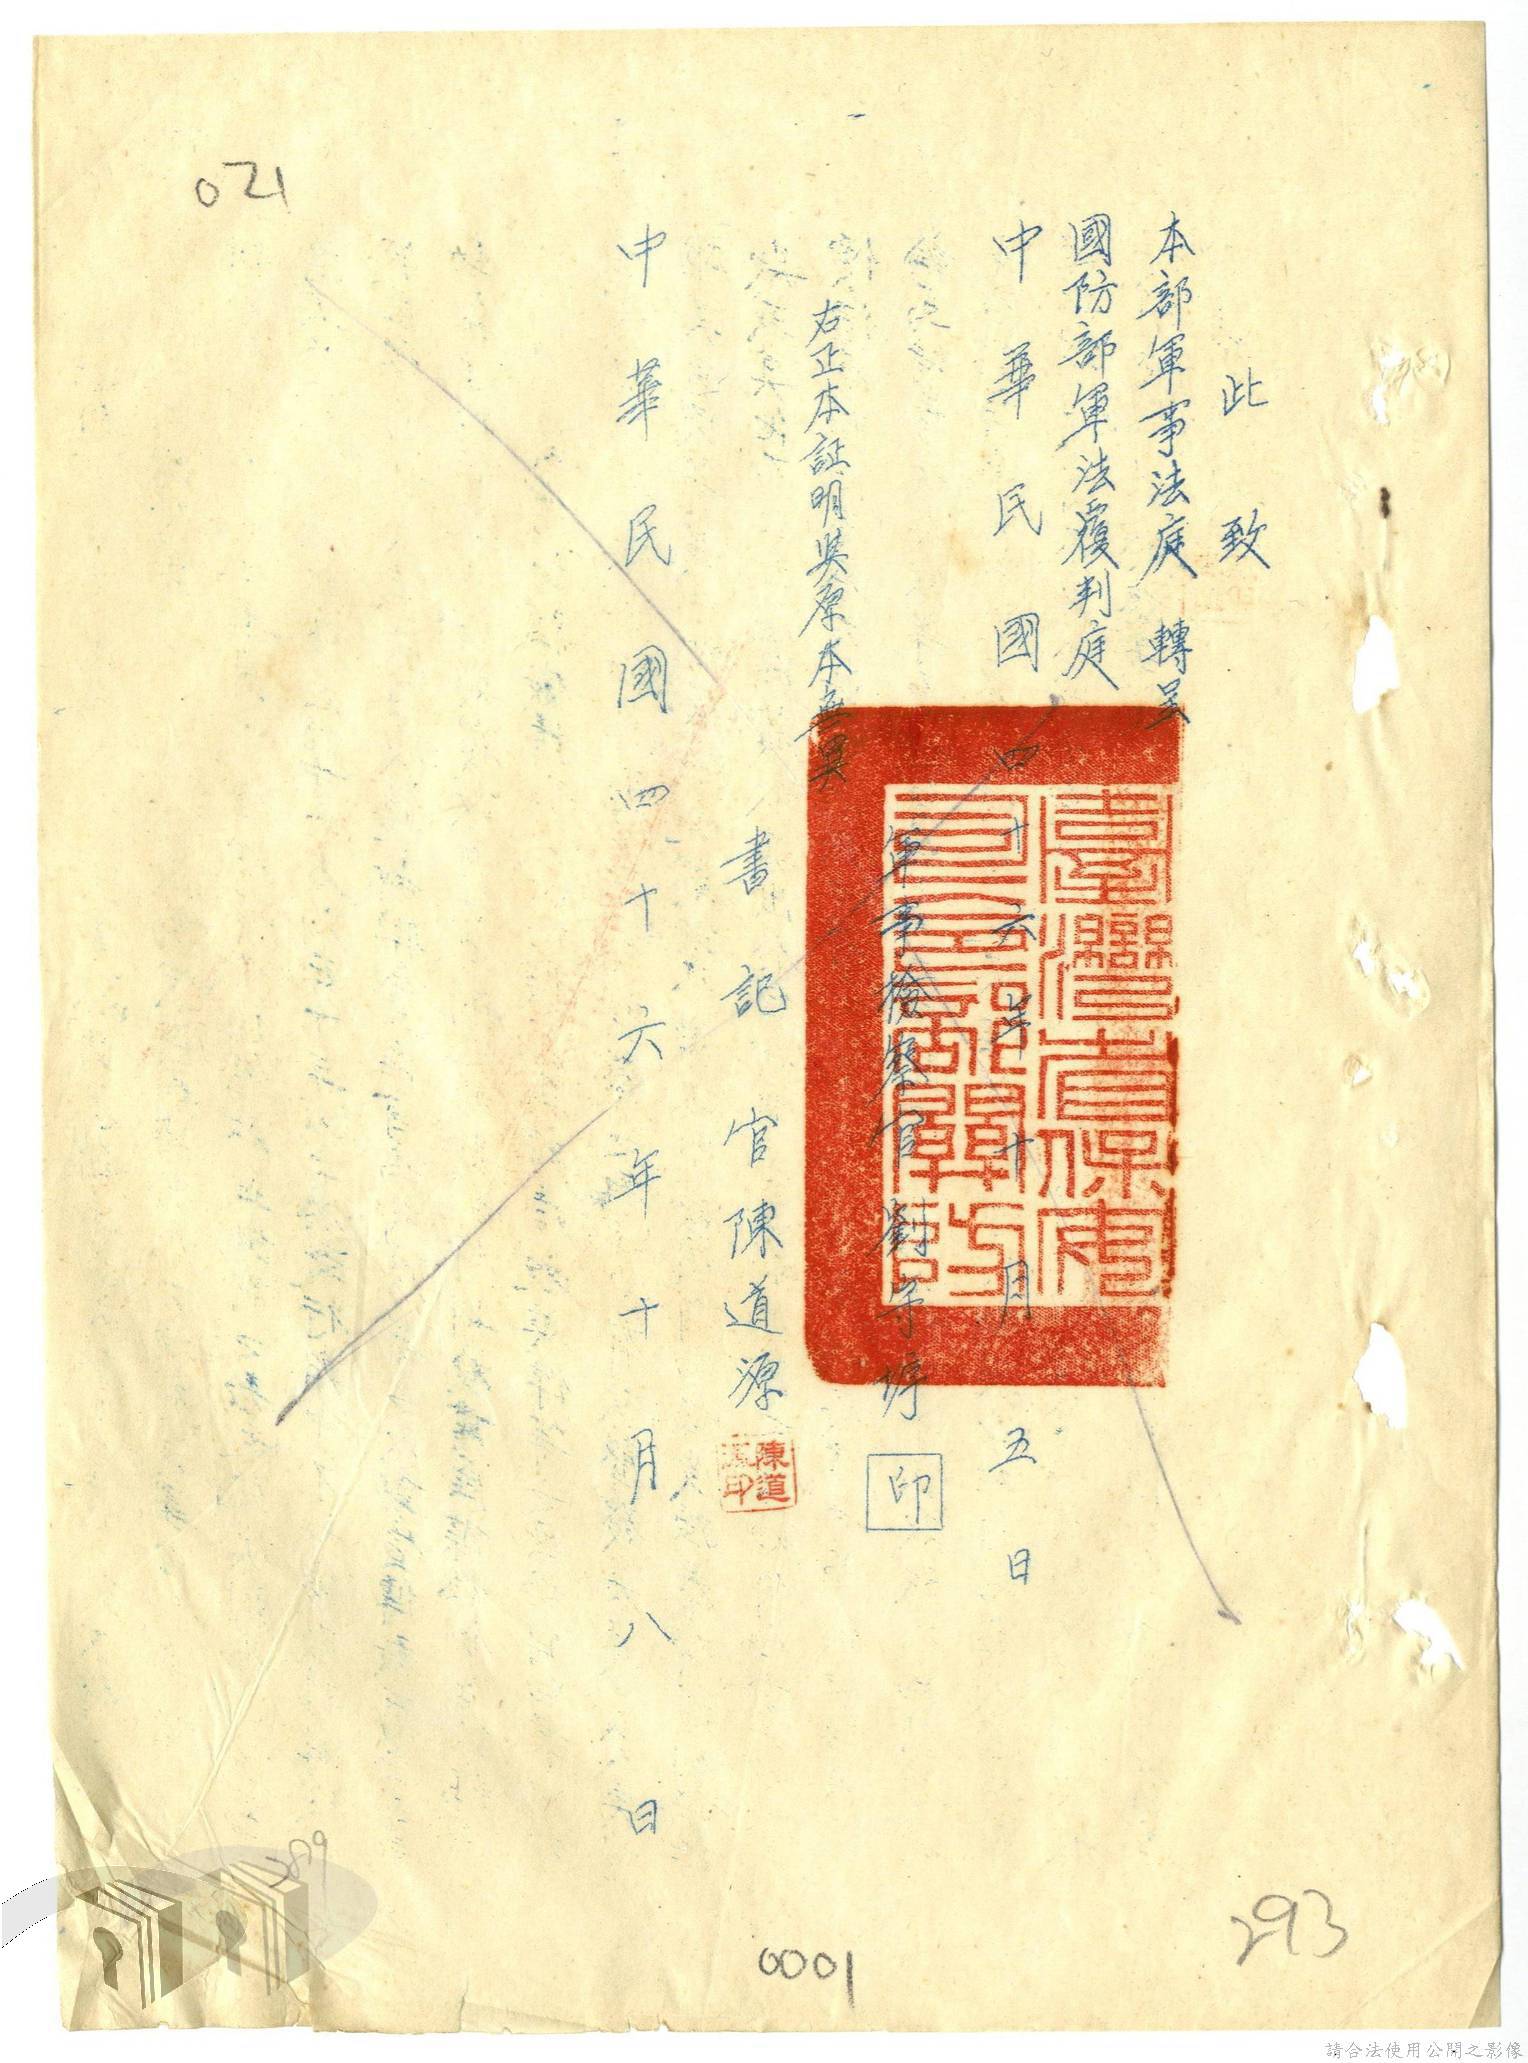 此致
本部軍事法庭 轉呈
國防部軍法覆判庭
中華民國四十六年十月五日
軍事檢察官 劉守
印
右正本証明與原本無異
書記官陳道源
陳道源印
中華民國四十六年十月八日
021
293
0001
請合法使用公開之影像